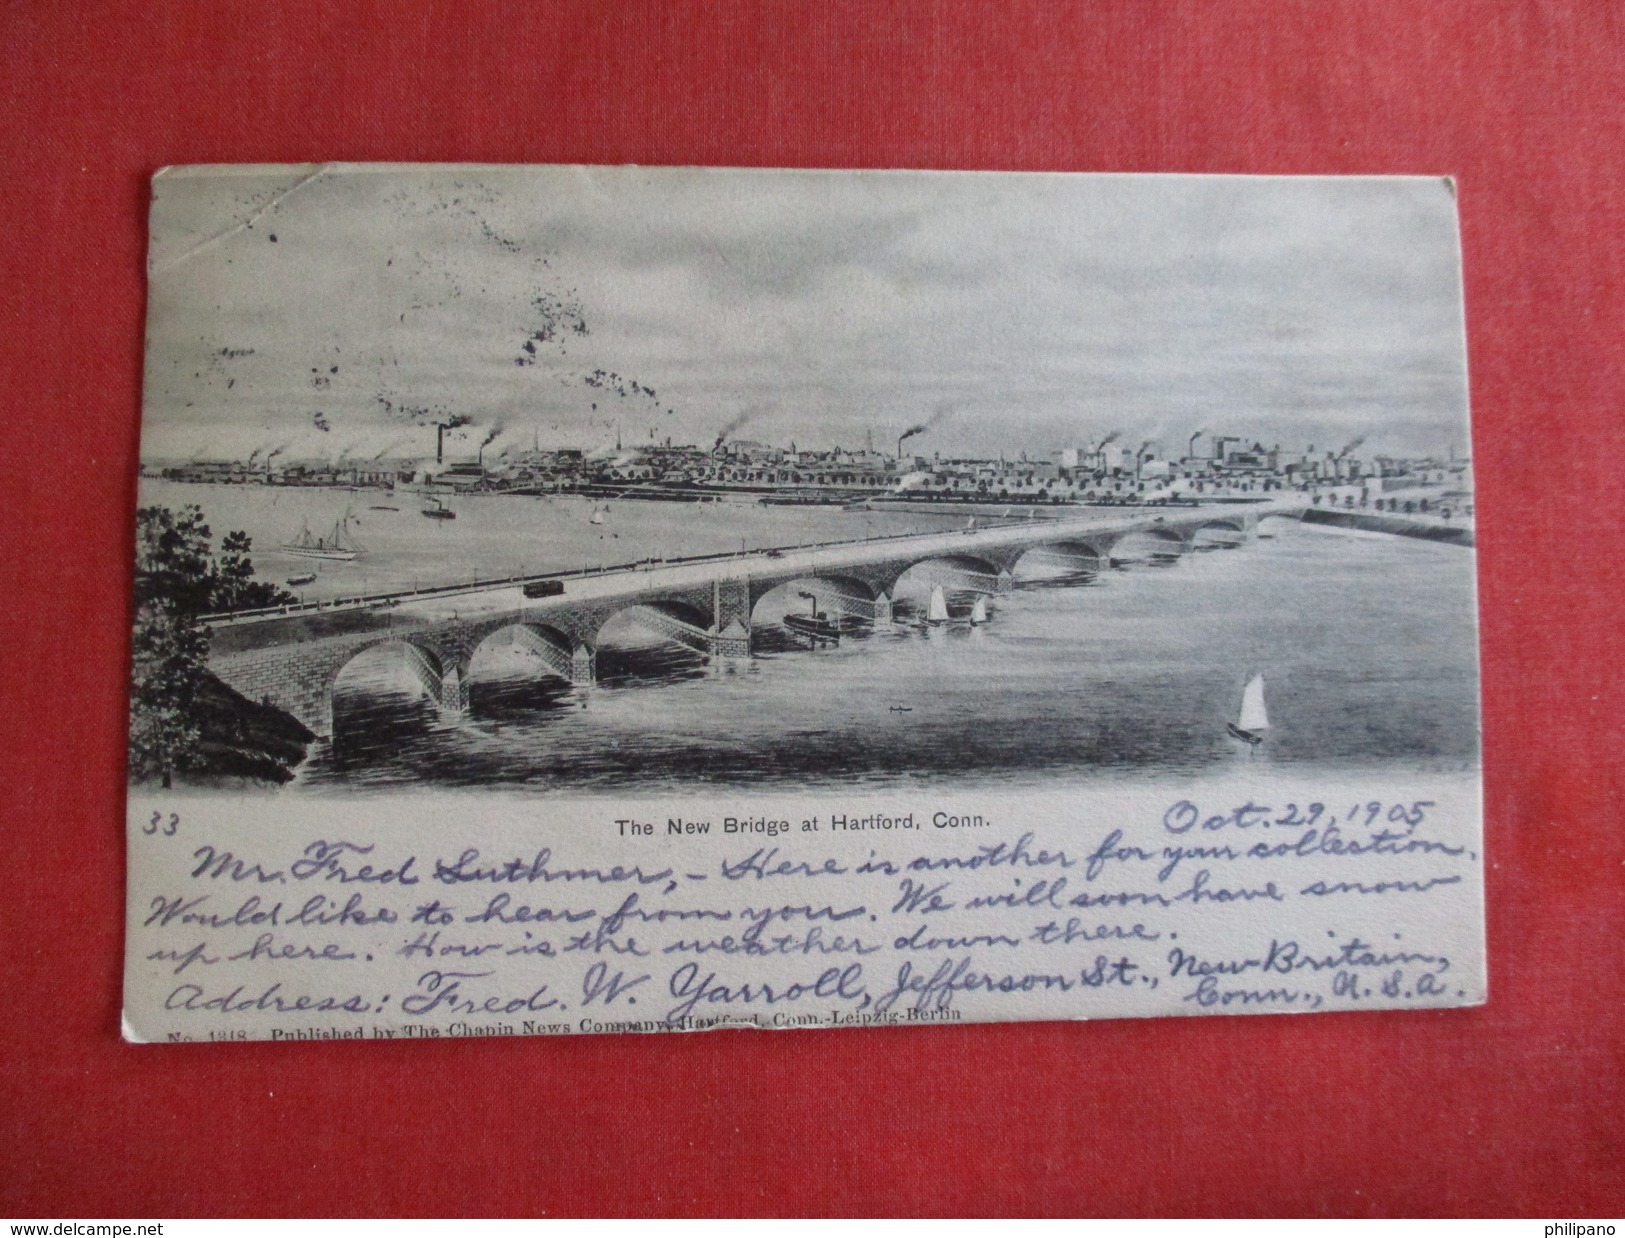 33
The New Bridge at Hartford, Conn.
Oct. 29, 1905
Mr. Fred Luthmer, - Here is another for your collection.
Would like to hear from you. We will soon have snow
up here. How is the weather down there.
Address: Fred. W. Yarroll, Jefferson St., New Britain,
Conn., U. S. A.
No. 1318 Published by The Chapin News Company, Hartford, Conn.-Leipzig-Berlin
website : www.delcampe.net
philipano